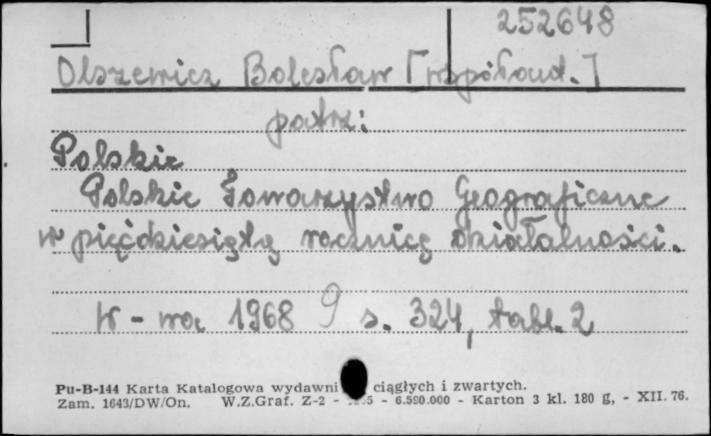 252648
Olszewicz Bolesław [współaut.]
patrz:
Polskie
Polskie Towarzystwo Geograficzne
w pięćdziesiątą rocznicę działalności.
W-wa 1968 9 s. 324, tabl. 2
Pu-B-144 Karta Katalogowa wydawni ciągłych i zwartych.
Zam. 1643/DW/On. W.Z.Graf. Z-2 - 5 - 6.590.000 - Karton 3 kl. 180 g, - XII. 76.